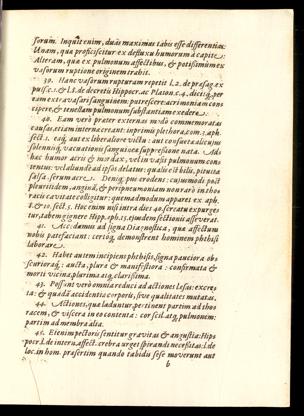 sorum. Inquit enim, duas maximas tabis esse differentias:
Unam, qua proficiscitur ex defluxu humorum à capite:
Alteram, qua ex pulmonum affectibus, & potissimum ex
vasorum ruptione originem trahit.
39. Hanc vasorum rupturam repetit l. 2. de præsag. ex
puls. c. & l. 8. de decretis Hippocr. ac Platon. c. 4. dicitq, per
eam extra vasa sanguinem putrescere: acrimoniam con
cipere, & tenellam pulmonum substantiam exedere.
40. Eam verò præter externas modò commemoratas
causas, etiam interna creant: inprimis plethora, com. 3. aph.
sect. 1. eaq, aut ex liberaliore victu: aut consueta alicujus
solennisq, vacuationis sanguineæ suppressione nata. Ad
hæc humor acris & mordax, vel in vasis pulmonum con
tentus: vel aliunde ad ipsos delatus: qualis est bilis, pituita
salsa, serum acre. Deniq, pus erodens: cujusmodi post
pleuritidem, anginã, & peripneumoniam non rarò in tho
racis cavitate colligitur: quemadmodum apparet ex aph.
8. & 10. sect. 5. Hæc enim nisi intra dies 40. sereatus expurges
tur, tabem gignere Hipp. aph. 15. ejusdem sectionis asseverat.
41. Accedamus ad signa Diagnostica, qua affectum
nobis patefaciant: certoq, demonstrent hominem phthisi
laborare.
42. Habet autem incipiens phthisis, signa pauciora obs
scurioraq: aucta, plura & manifestiora: confirmata &
morti vicina, plurima atq, clarissima.
43. Possunt verò omnia reduci ad actiones lesas: excre
ta: & quædã accidentia corporis, sive qualitates mutatas.
44. Actiones, quæ læduntur, pertinent partim ad tho
racem, & viscera in eo contenta: cor scil. atq, pulmonem:
partim ad membra alia.
45. Etenim pectoris sentitur gravitas & angustia: Hip
pocr. l. de intern. affect. crebra urget spirandi necesitas: l. de
loc. in hom. præsertim quando tabidi sese moverunt aut
b